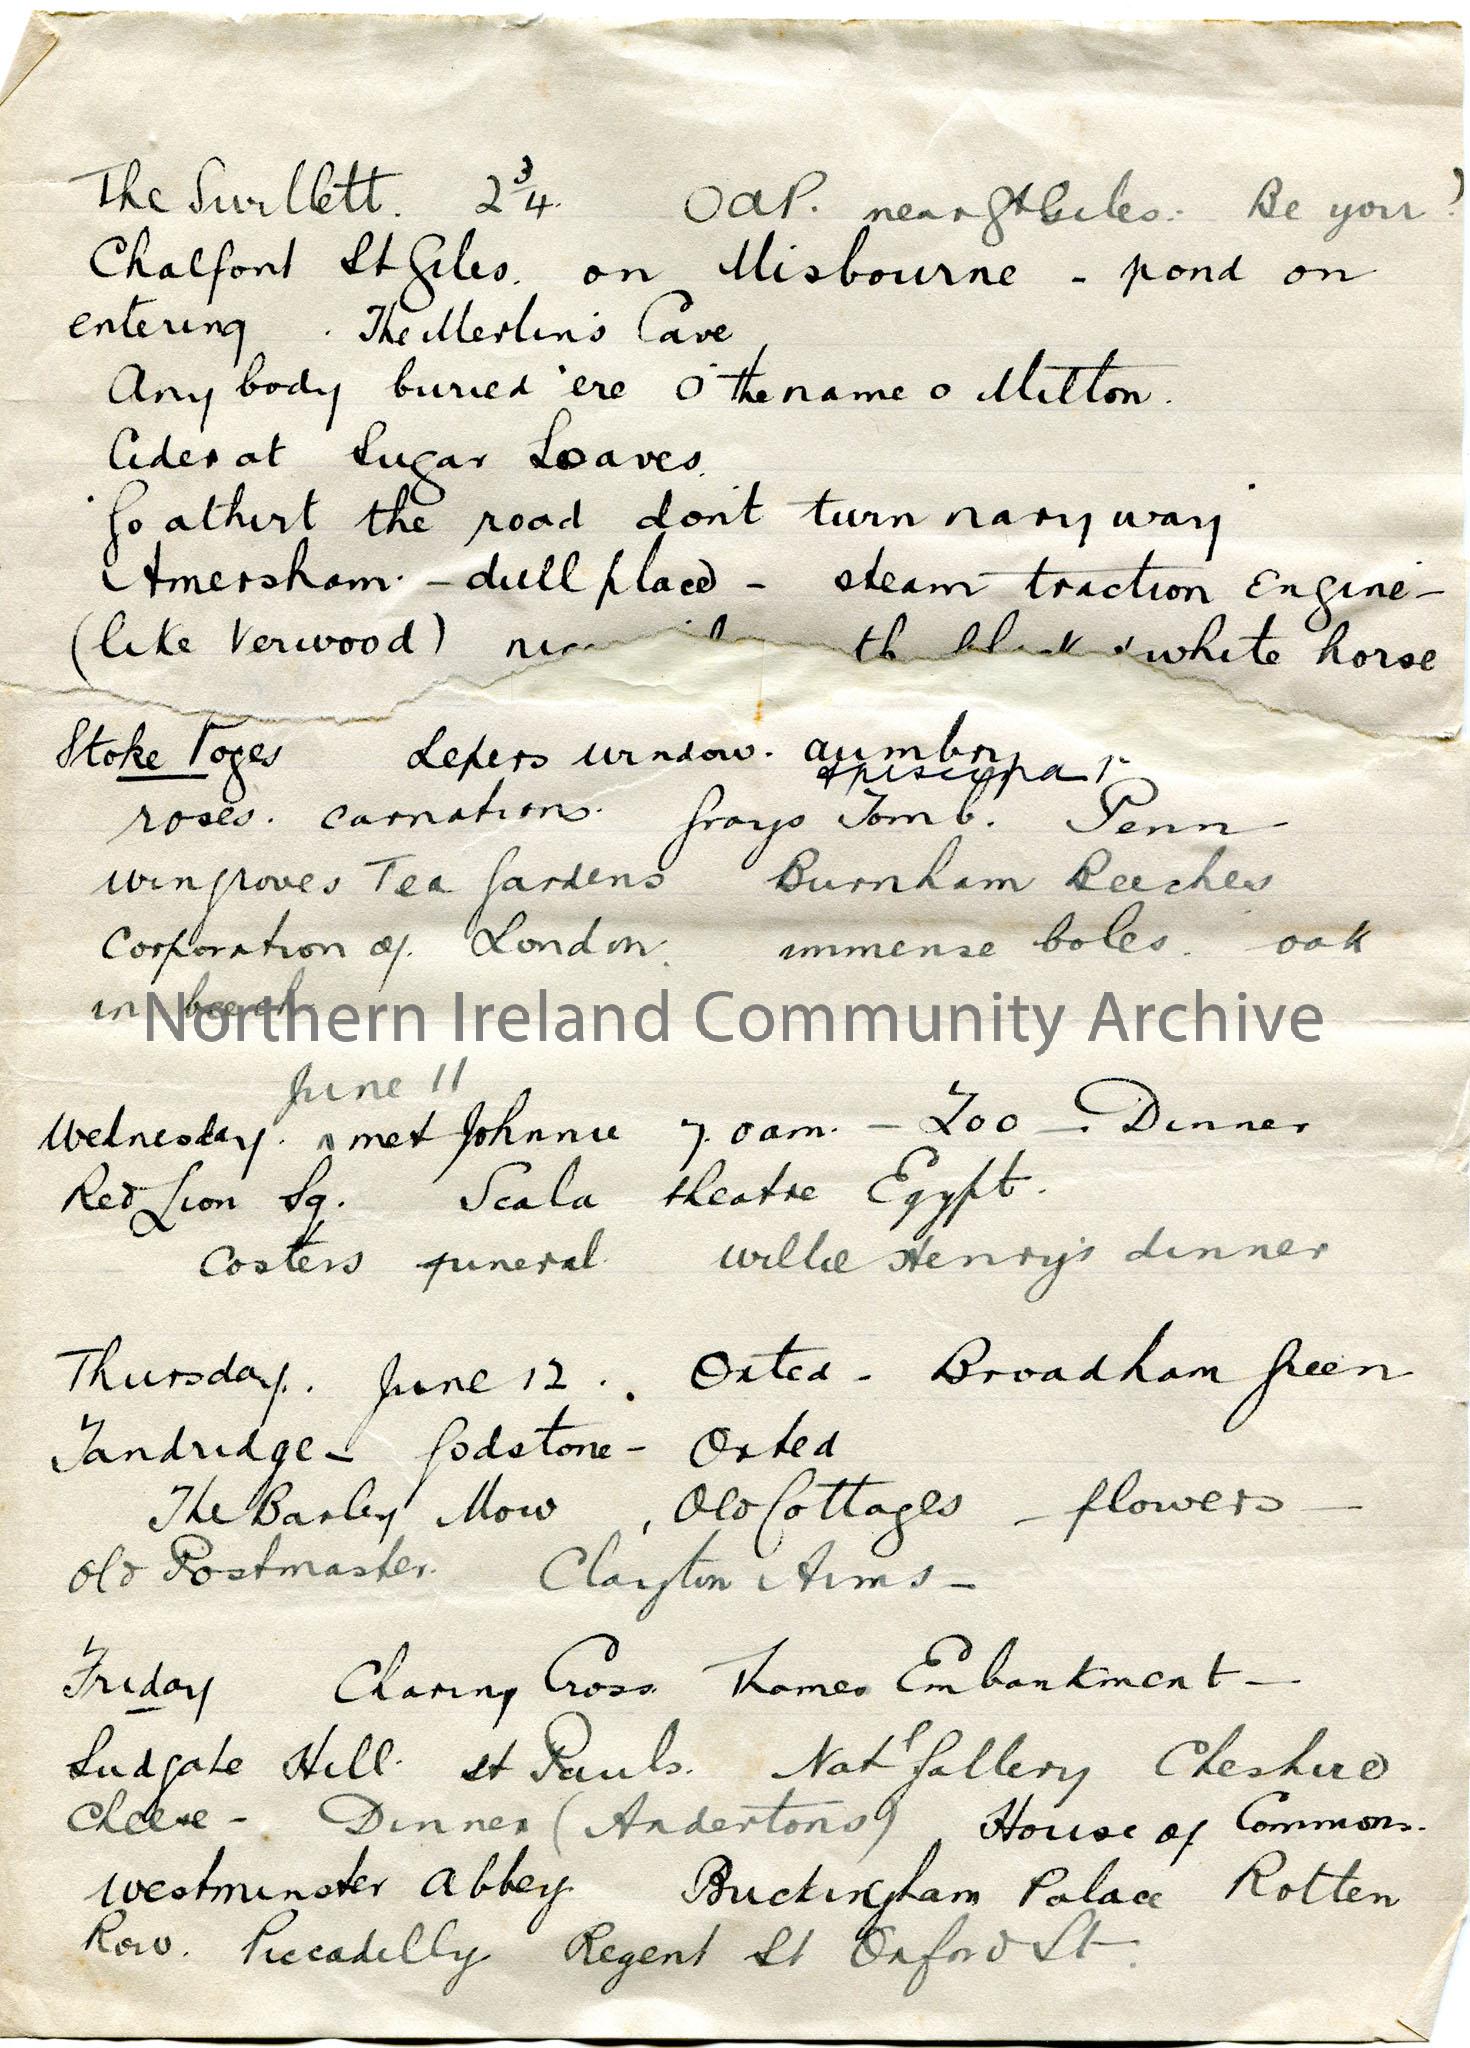 The Swillett. 2 3/4. OAP. near St Giles. Be your?
Chalfont St Giles. on Misbourne - pond on
entering . The Merlin's Cave
Any body buried 'ere o' the name o Milton.
Cider at Sugar Loaves.
'Go athirt the road don't turn nary way'
Amersham - dull place - steam traction engine -
(like Verwood) white horse
Stoke Poges Lepers window. aumbry
episcopal
roses. carnations. Grays Tomb. Penn
Wingroves Tea Gardens Burnham Beeches
Corporation of London. immense boles. oak
in beech
Northern Ireland Community Archive
June 11
Wednesday. met Johnnie 7.0 am. - Zoo - Dinner
Red Lion Sq. Scala theatre Egypt.
Costers funeral. Willie Henry's dinner
Thursday. June 12. Oxted - Broadham Green
Tandridge - Godstone - Oxted
The Barley Mow, Old Cottages - flowers -
Old Postmaster. Clayton Arms -
Friday Charing Cross Thames Embankment -
Ludgate Hill. St Pauls. Natl Gallery Cheshire
Cheese - Dinner (Andertons) House of Commons.
Westminster Abbey Buckingham Palace Rotten
Row. Piccadilly Regent St Oxford St.